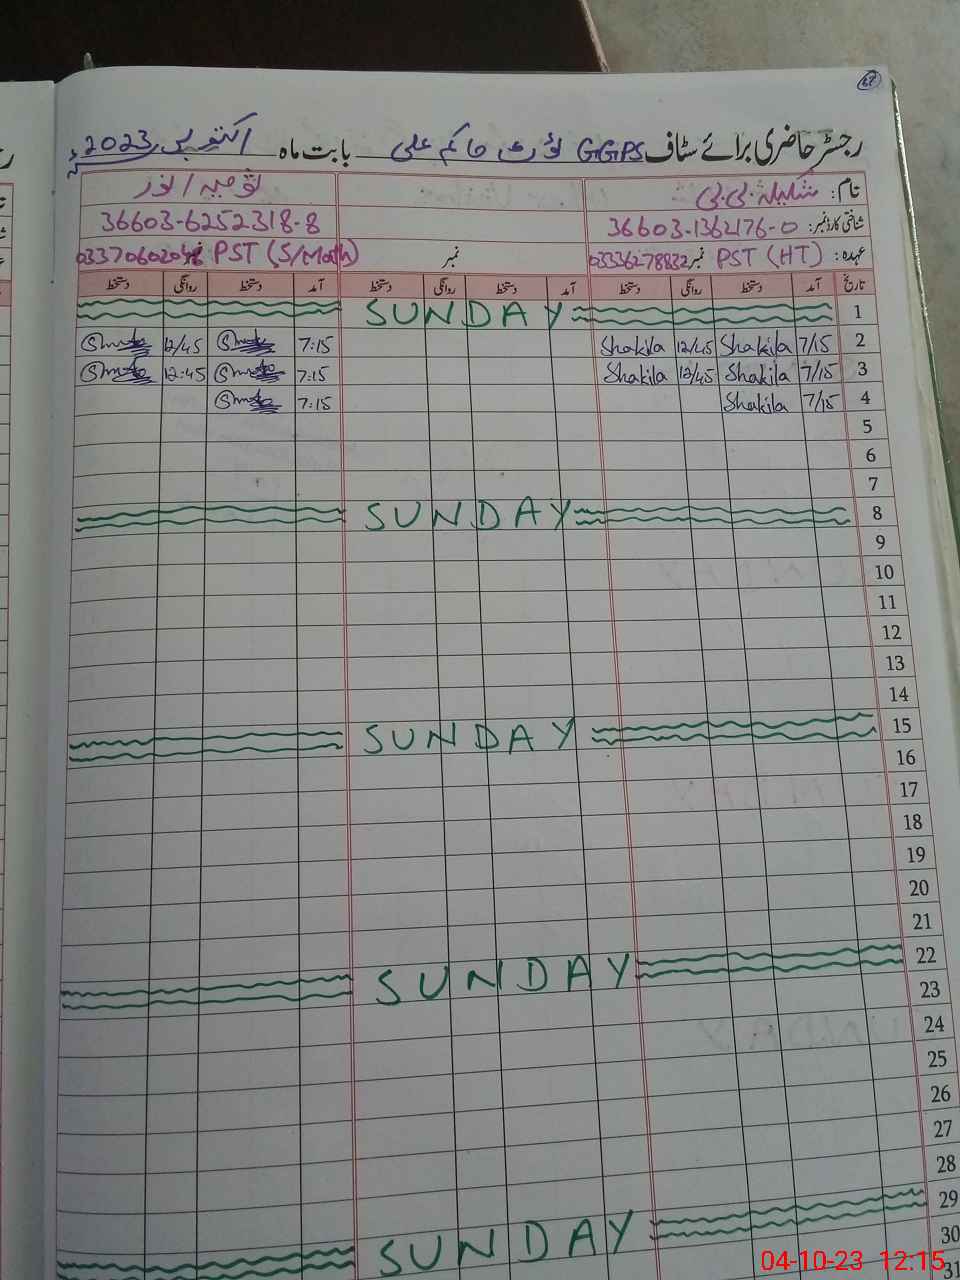 67
رجسٹر حاضری برائے سٹاف GGPS کوٹ حاکم علی بابت ماہ اکتوبر 2023ء
نام: شکیلہ بی بی
شناختی کارڈ نمبر: 36603-1362176-0 36603-6252318-8
عہدہ: PST (HT) نمبر 03336278832 نمبر PST (S/Math)
تاریخ آمد دستخط روانگی دستخط آمد دستخط روانگی دستخط آمد دستخط روانگی دستخط
1 SUNDAY
2 7/15 Shakila 12/45 Shakila 7:15 12/45
3 7/15 Shakila 12/45 Shakila 7:15 12:45
4 7/15 Shakila 7:15
5
6
7
8 SUNDAY
9
10
11
12
13
14
15 SUNDAY
16
17
18
19
20
21
22 SUNDAY
23
24
25
26
27
28
29 SUNDAY
30
31
04-10-23 12:15